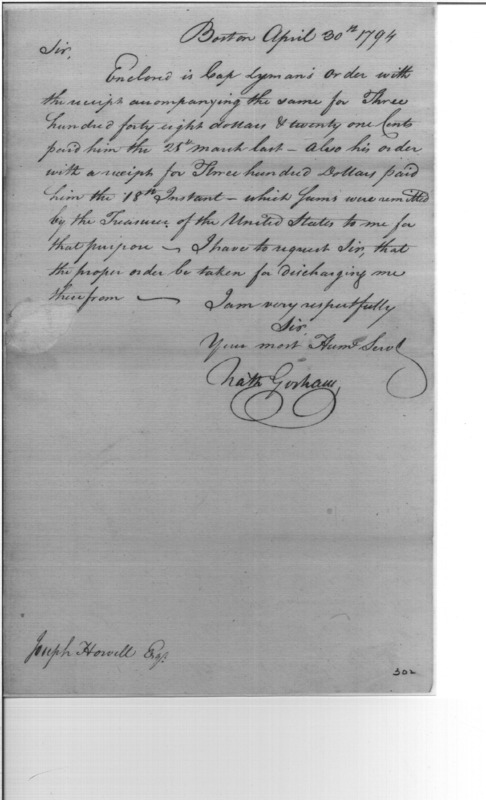 Boston April 30th 1794
Sir,
Enclosed is Cap Lyman's Order with
the receipt accompanying the same for Three
hundred forty eight dollars & twenty one Cents
paid him the 25th march last – also his order
with a receipt for Three hundred Dollars paid
him the 18th Instant – which sums were remitted
by the Treasurer of the United States to me for
that purpose – I have to request Sir, that
the proper order be taken for discharging me
therefrom – I am very respectfully
Sir
Your most Humb Servt
Nath Gorham
Joseph Howell Esqr
302